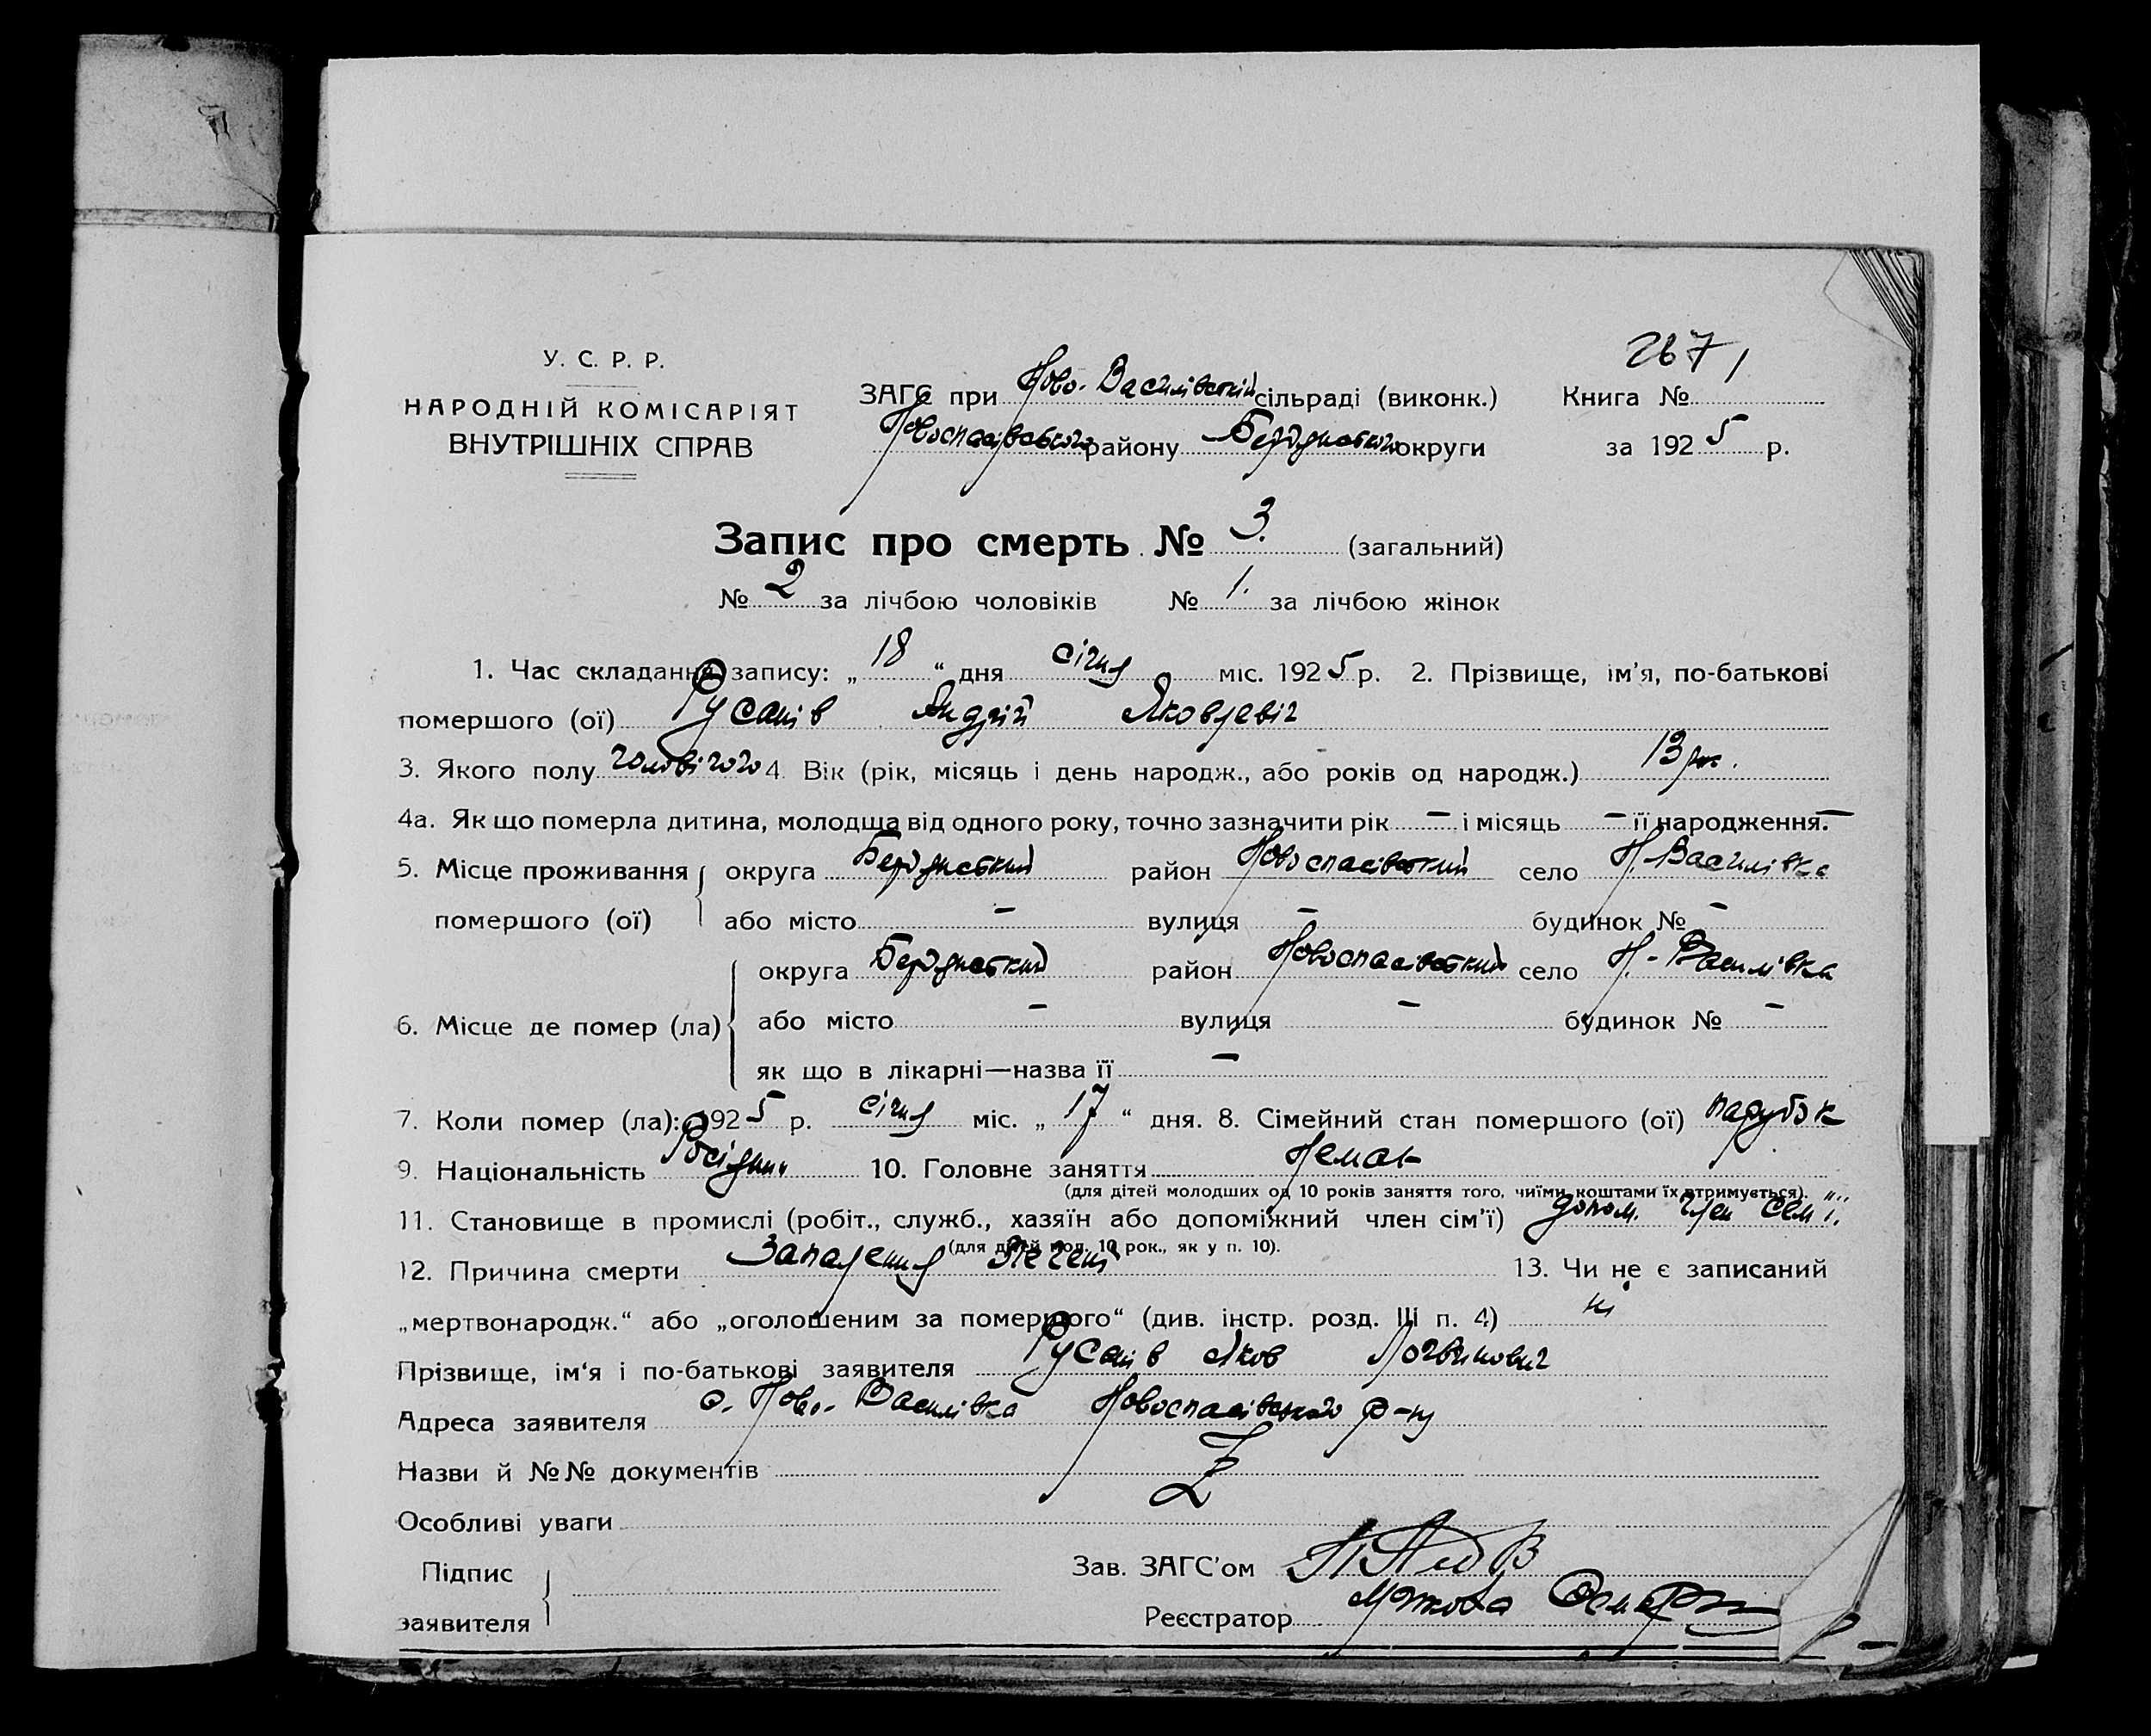 267
У. С. Р. Р.
НАРОДНІЙ КОМІСАРІЯТ
ВНУТРІШНІХ СПРАВ
ЗАГС при Ново-Василівській сільраді (виконк.) Книга №
Новоспасівського району Бердянського округи за 1925 р.
Запис про смерть № 3. (загальний)
№ 2 за лічбою чоловіків № 1. за лічбою жінок
1. Час складання запису: „18“ дня січня міс. 1925 р. 2. Прізвище, ім'я, по-батькові
помершого (ої) Русанів Андрій Яковлевіч
3. Якого полу чоловічого 4. Вік (рік, місяць і день народж., або років од народж.) 13 рок.
4а. Як що померла дитина, молодща від одного року, точно зазначити рік – і місяць – її народження. –
5. Місце проживання округа Бердянський район Новоспасівський село Н. Василівка
помершого (ої) або місто – вулиця – будинок № –
округа Бердянський район Новоспасівський село Н-Василівка
6. Місце де помер (ла) або місто – вулиця – будинок № –
як що в лікарні—назва її –
7. Коли помер (ла): 1925 р. січня міс. „17“ дня. 8. Сімейний стан помершого (ої) парубок
9. Національність Росіянин 10. Головне заняття Немає
(для дітей молодших од 10 років заняття того, чиїми коштами їх втримується).
11. Становище в промислі (робіт., служб., хазяїн або допоміжний член сім'ї) допом. член сем'ї.
(для дітей мол. 10 рок., як у п. 10).
12. Причина смерти Запалення Печені 13. Чи не є записаний
„мертвонародж.“ або „оголошеним за помершого“ (див. інстр. розд. III п. 4) ні
Прізвище, ім'я і по-батькові заявителя Русанів Яков Логвинович
Адреса заявителя с. Ново-Василівка Новоспасівського р-ну
Назви й №№ документів
Особливі уваги
Підпис
заявителя
Зав. ЗАГС'ом
Реєстратор